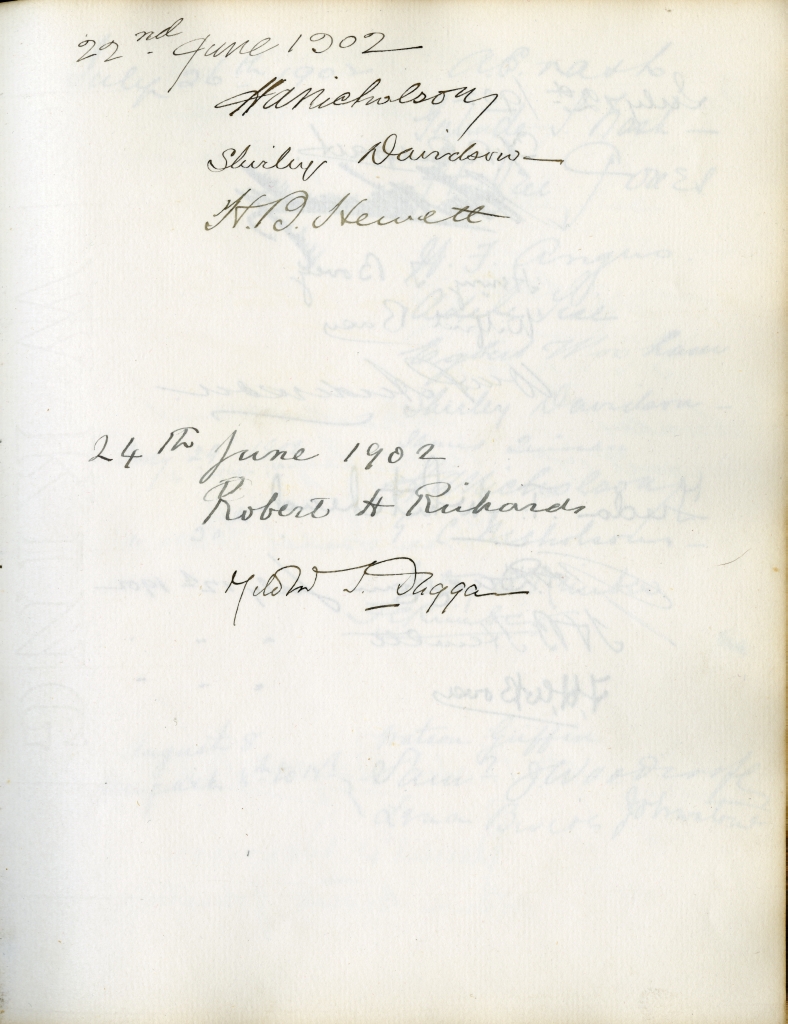 22nd June 1902
HANicholson
Shirley Davidson
H.B. Hewett
24th June 1902
Robert H Richards
T. Duggan